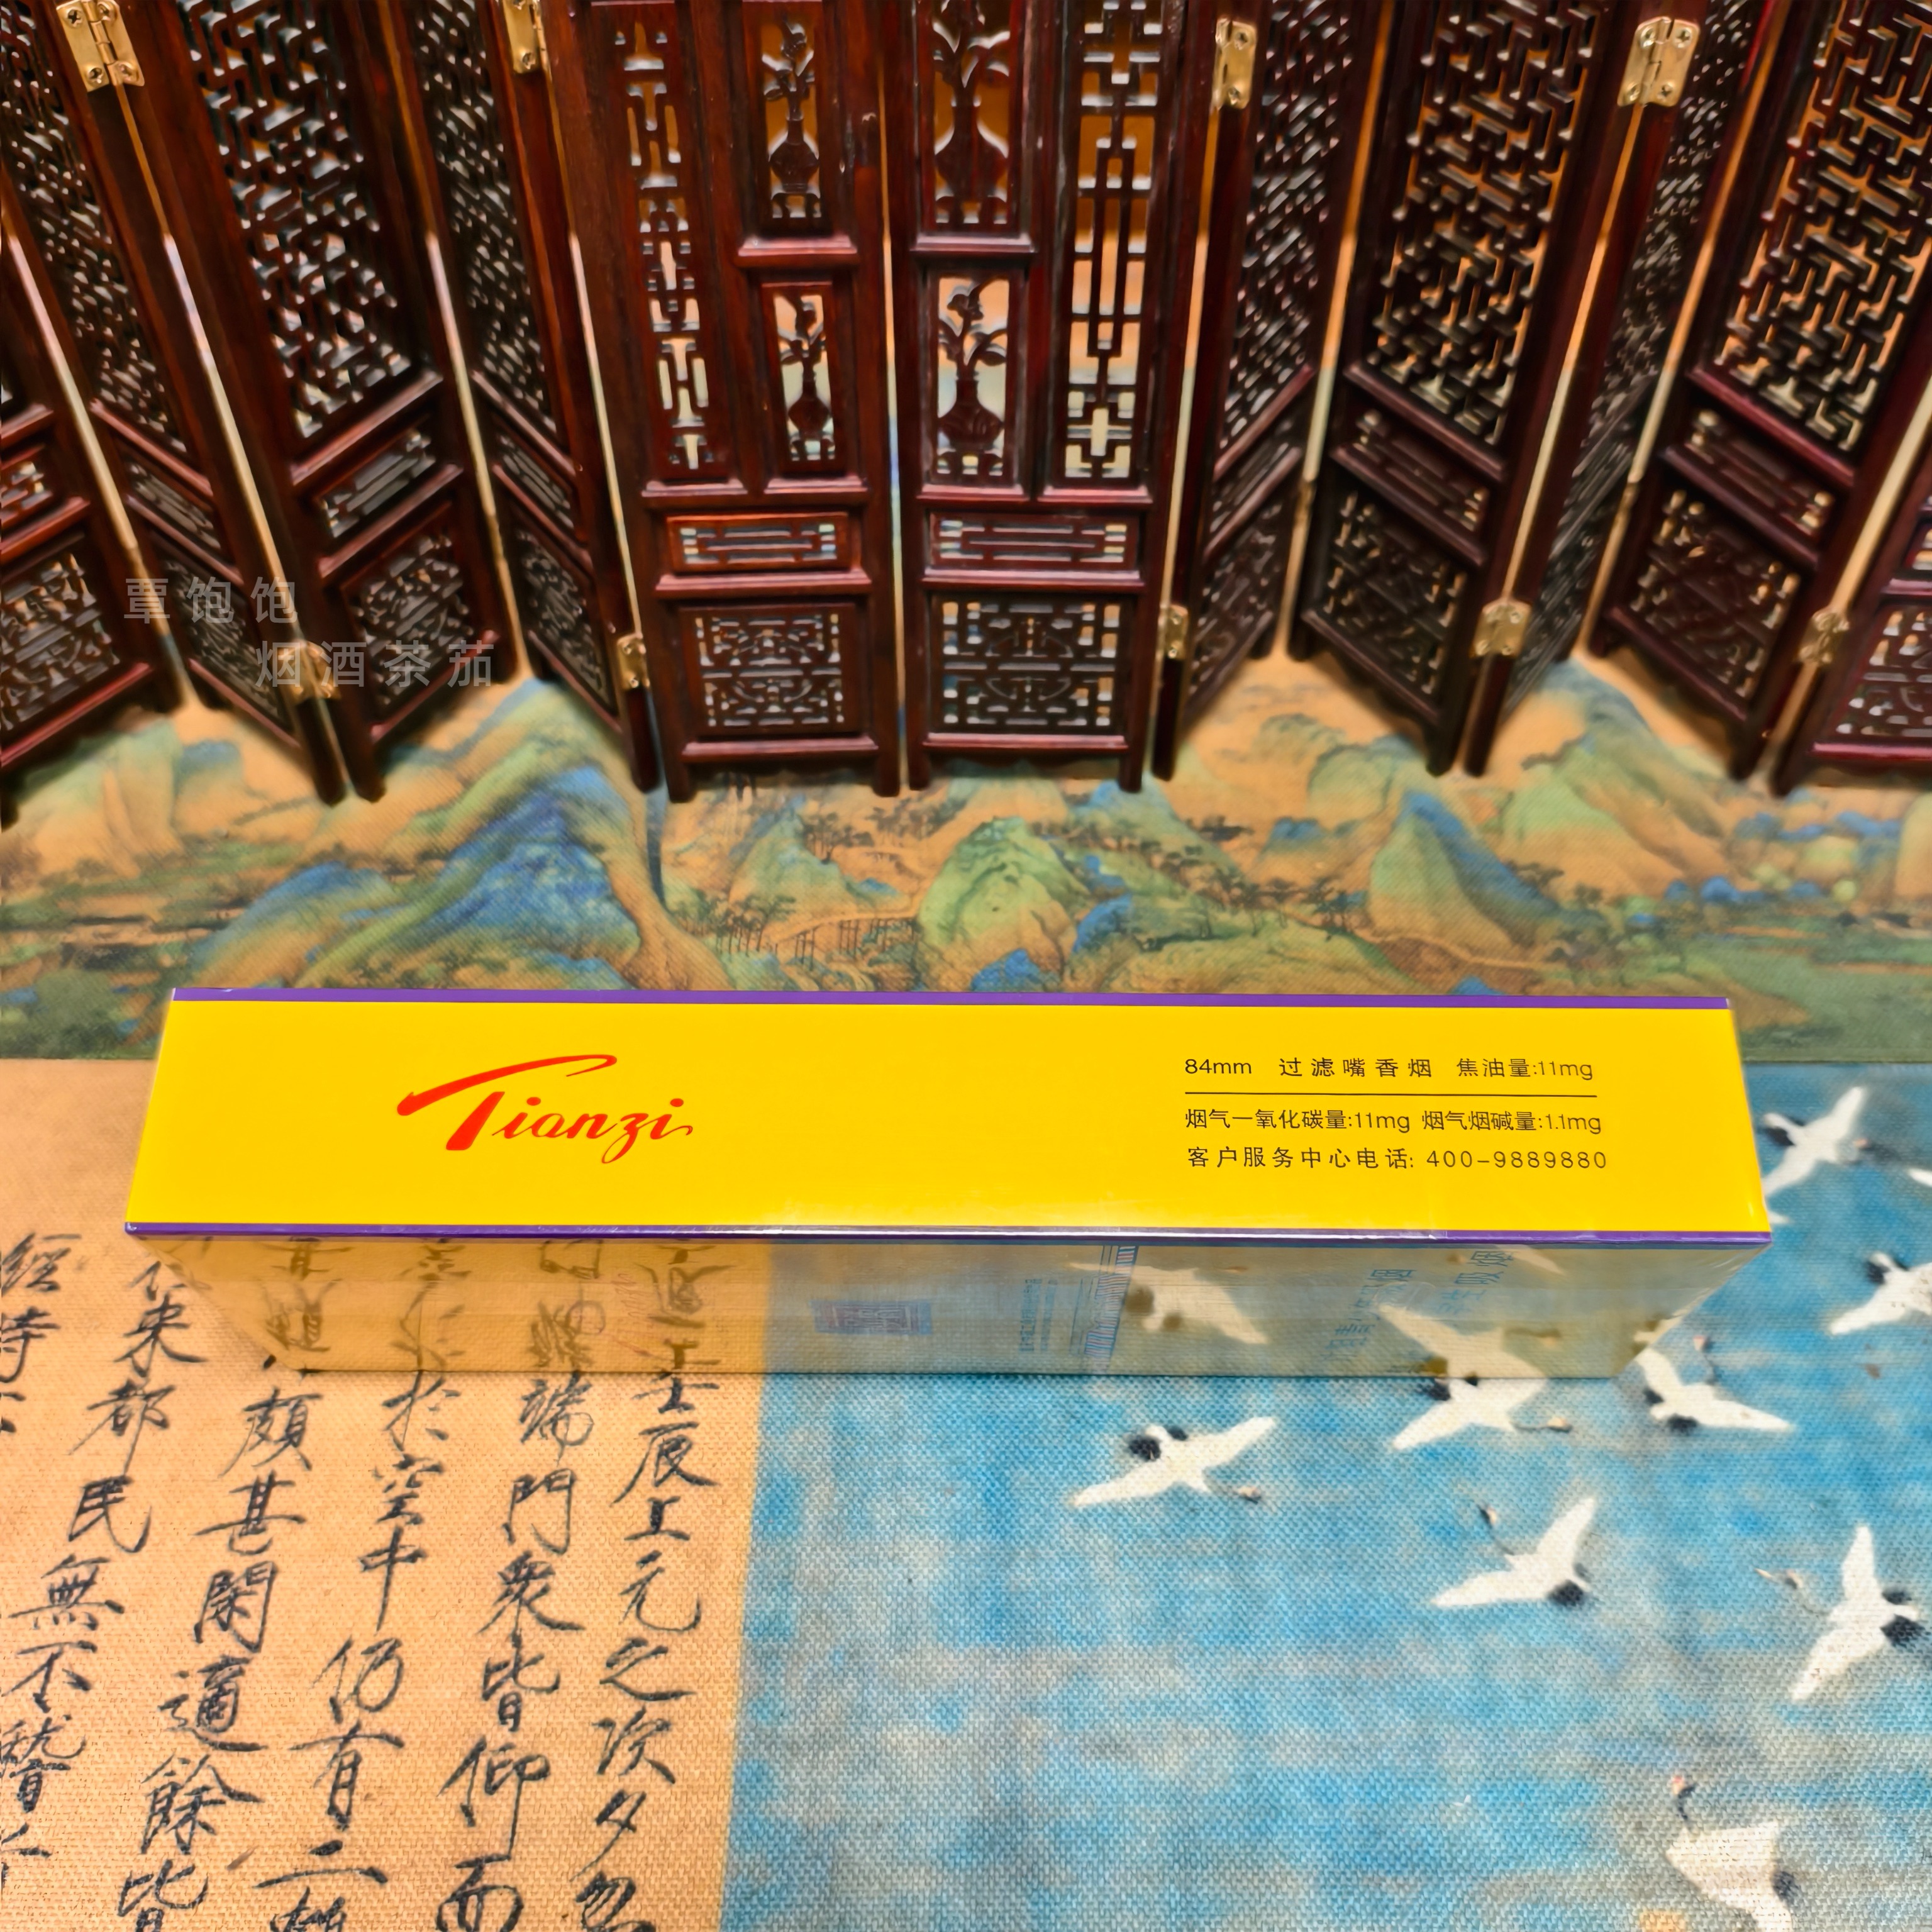 覃饱饱
烟酒茶茄
Tianzi
84mm 过滤嘴香烟 焦油量:11mg
烟气一氧化碳量:11mg 烟气烟碱量:1.1mg
客户服务中心电话: 400-9889880
壬辰上元之次夕忽
端門衆皆仰而
於空中仍有二
頗甚閑適餘皆
來都民無不
經時